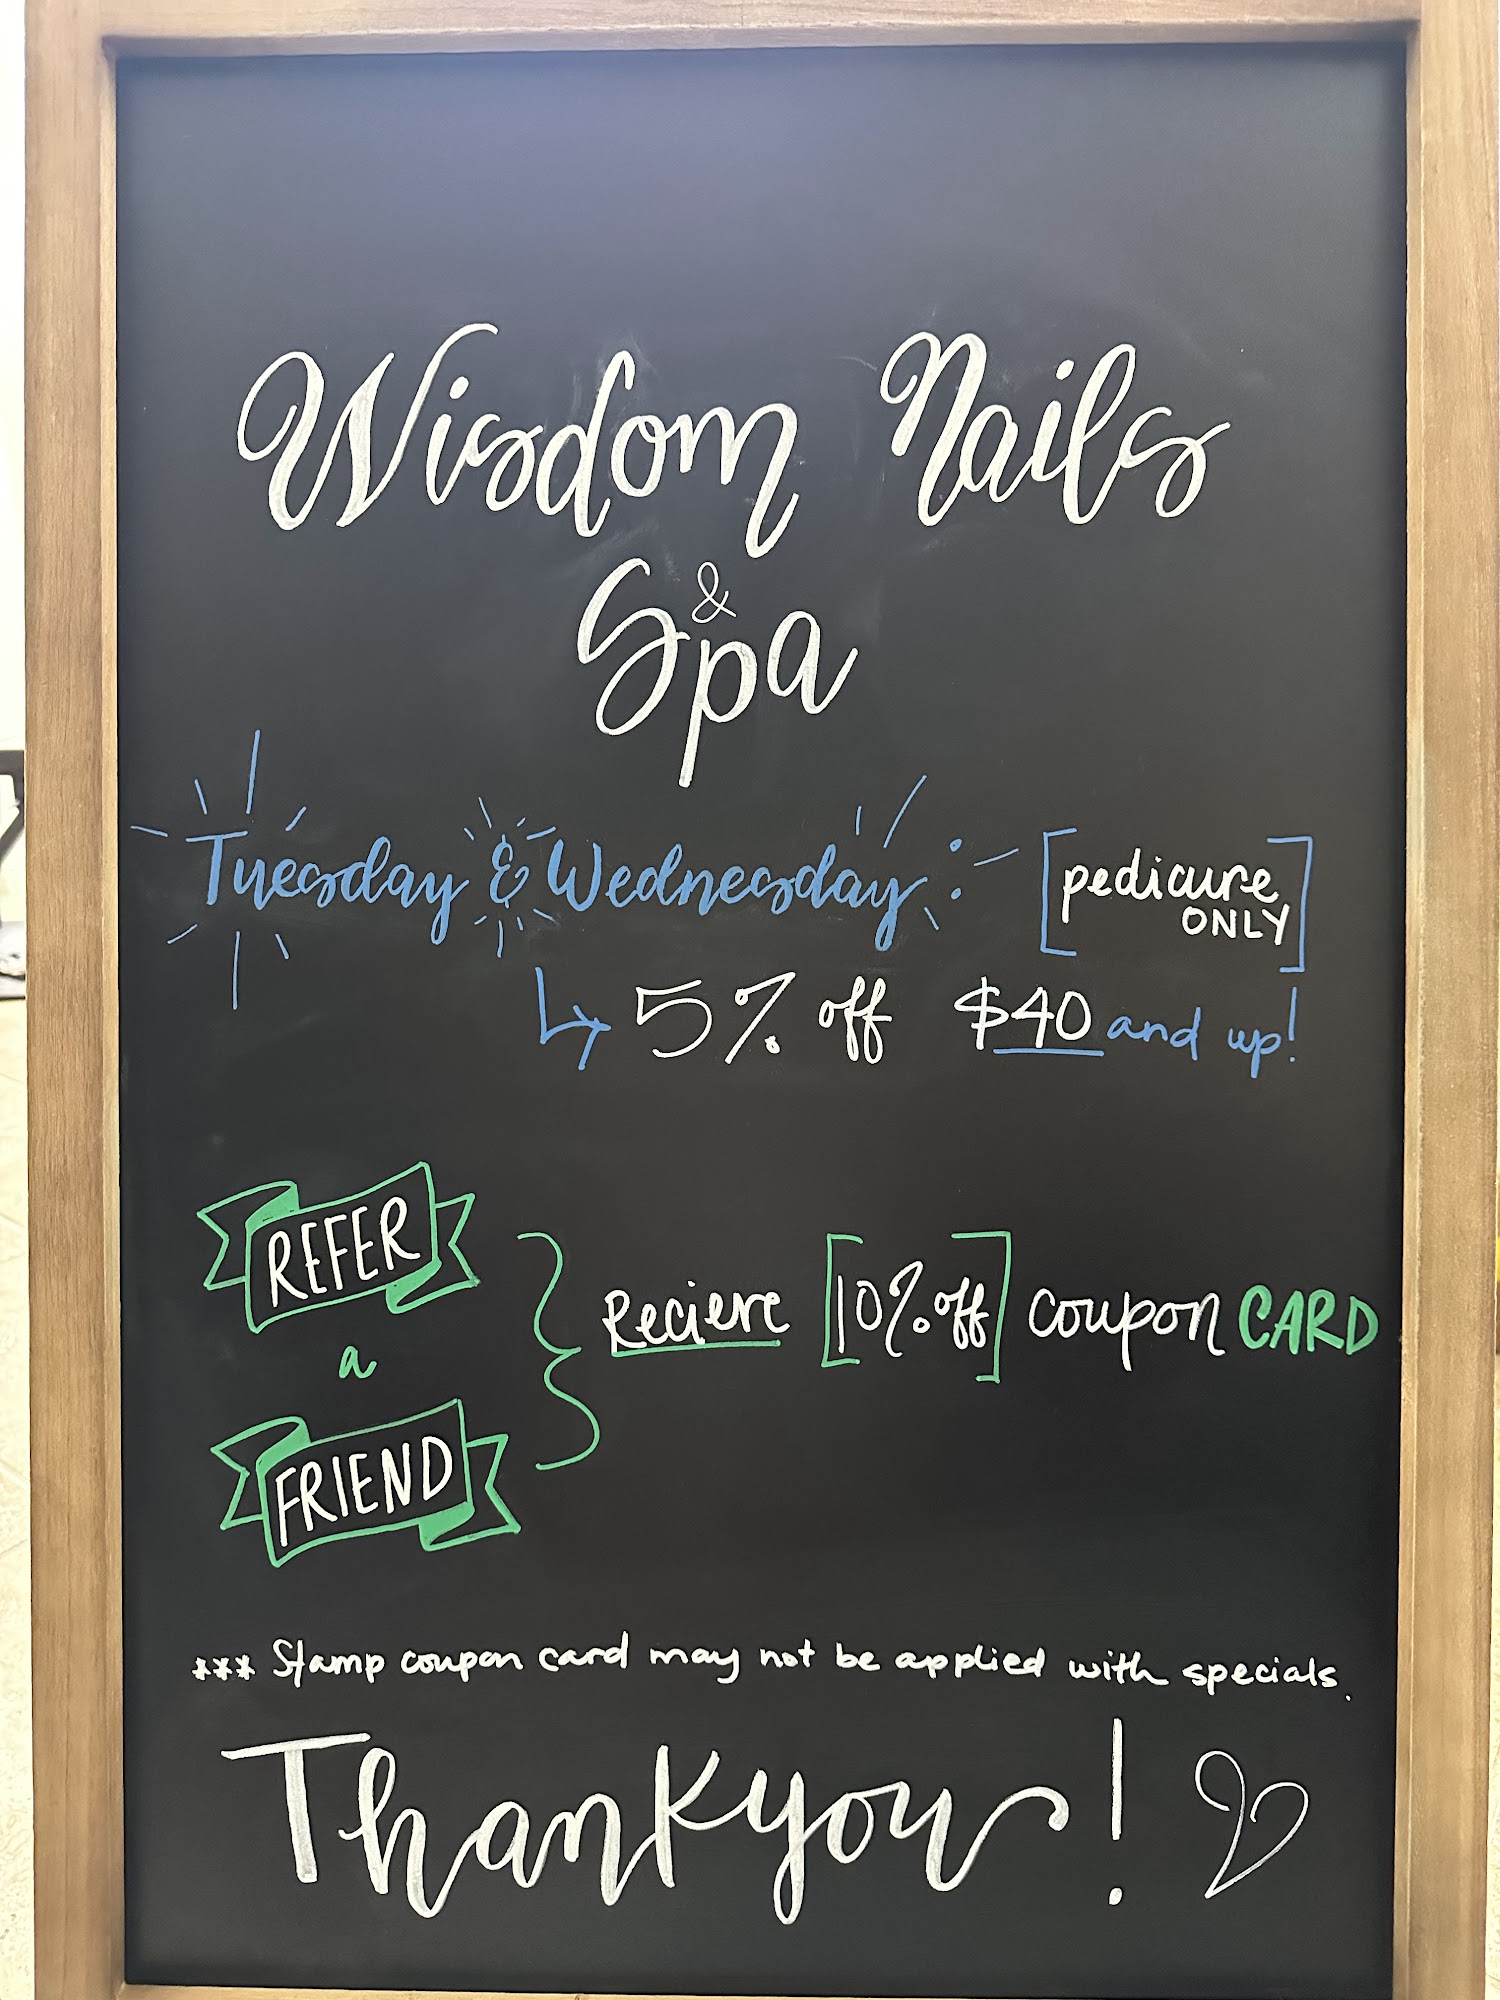 Wisdom Nails
& Spa
Tuesday & Wednesday: [pedicure ONLY]
5% off $40 and up!
REFER
a
FRIEND
Recieve [10% off] coupon CARD
*** Stamp coupon card may not be applied with specials.
Thank you!